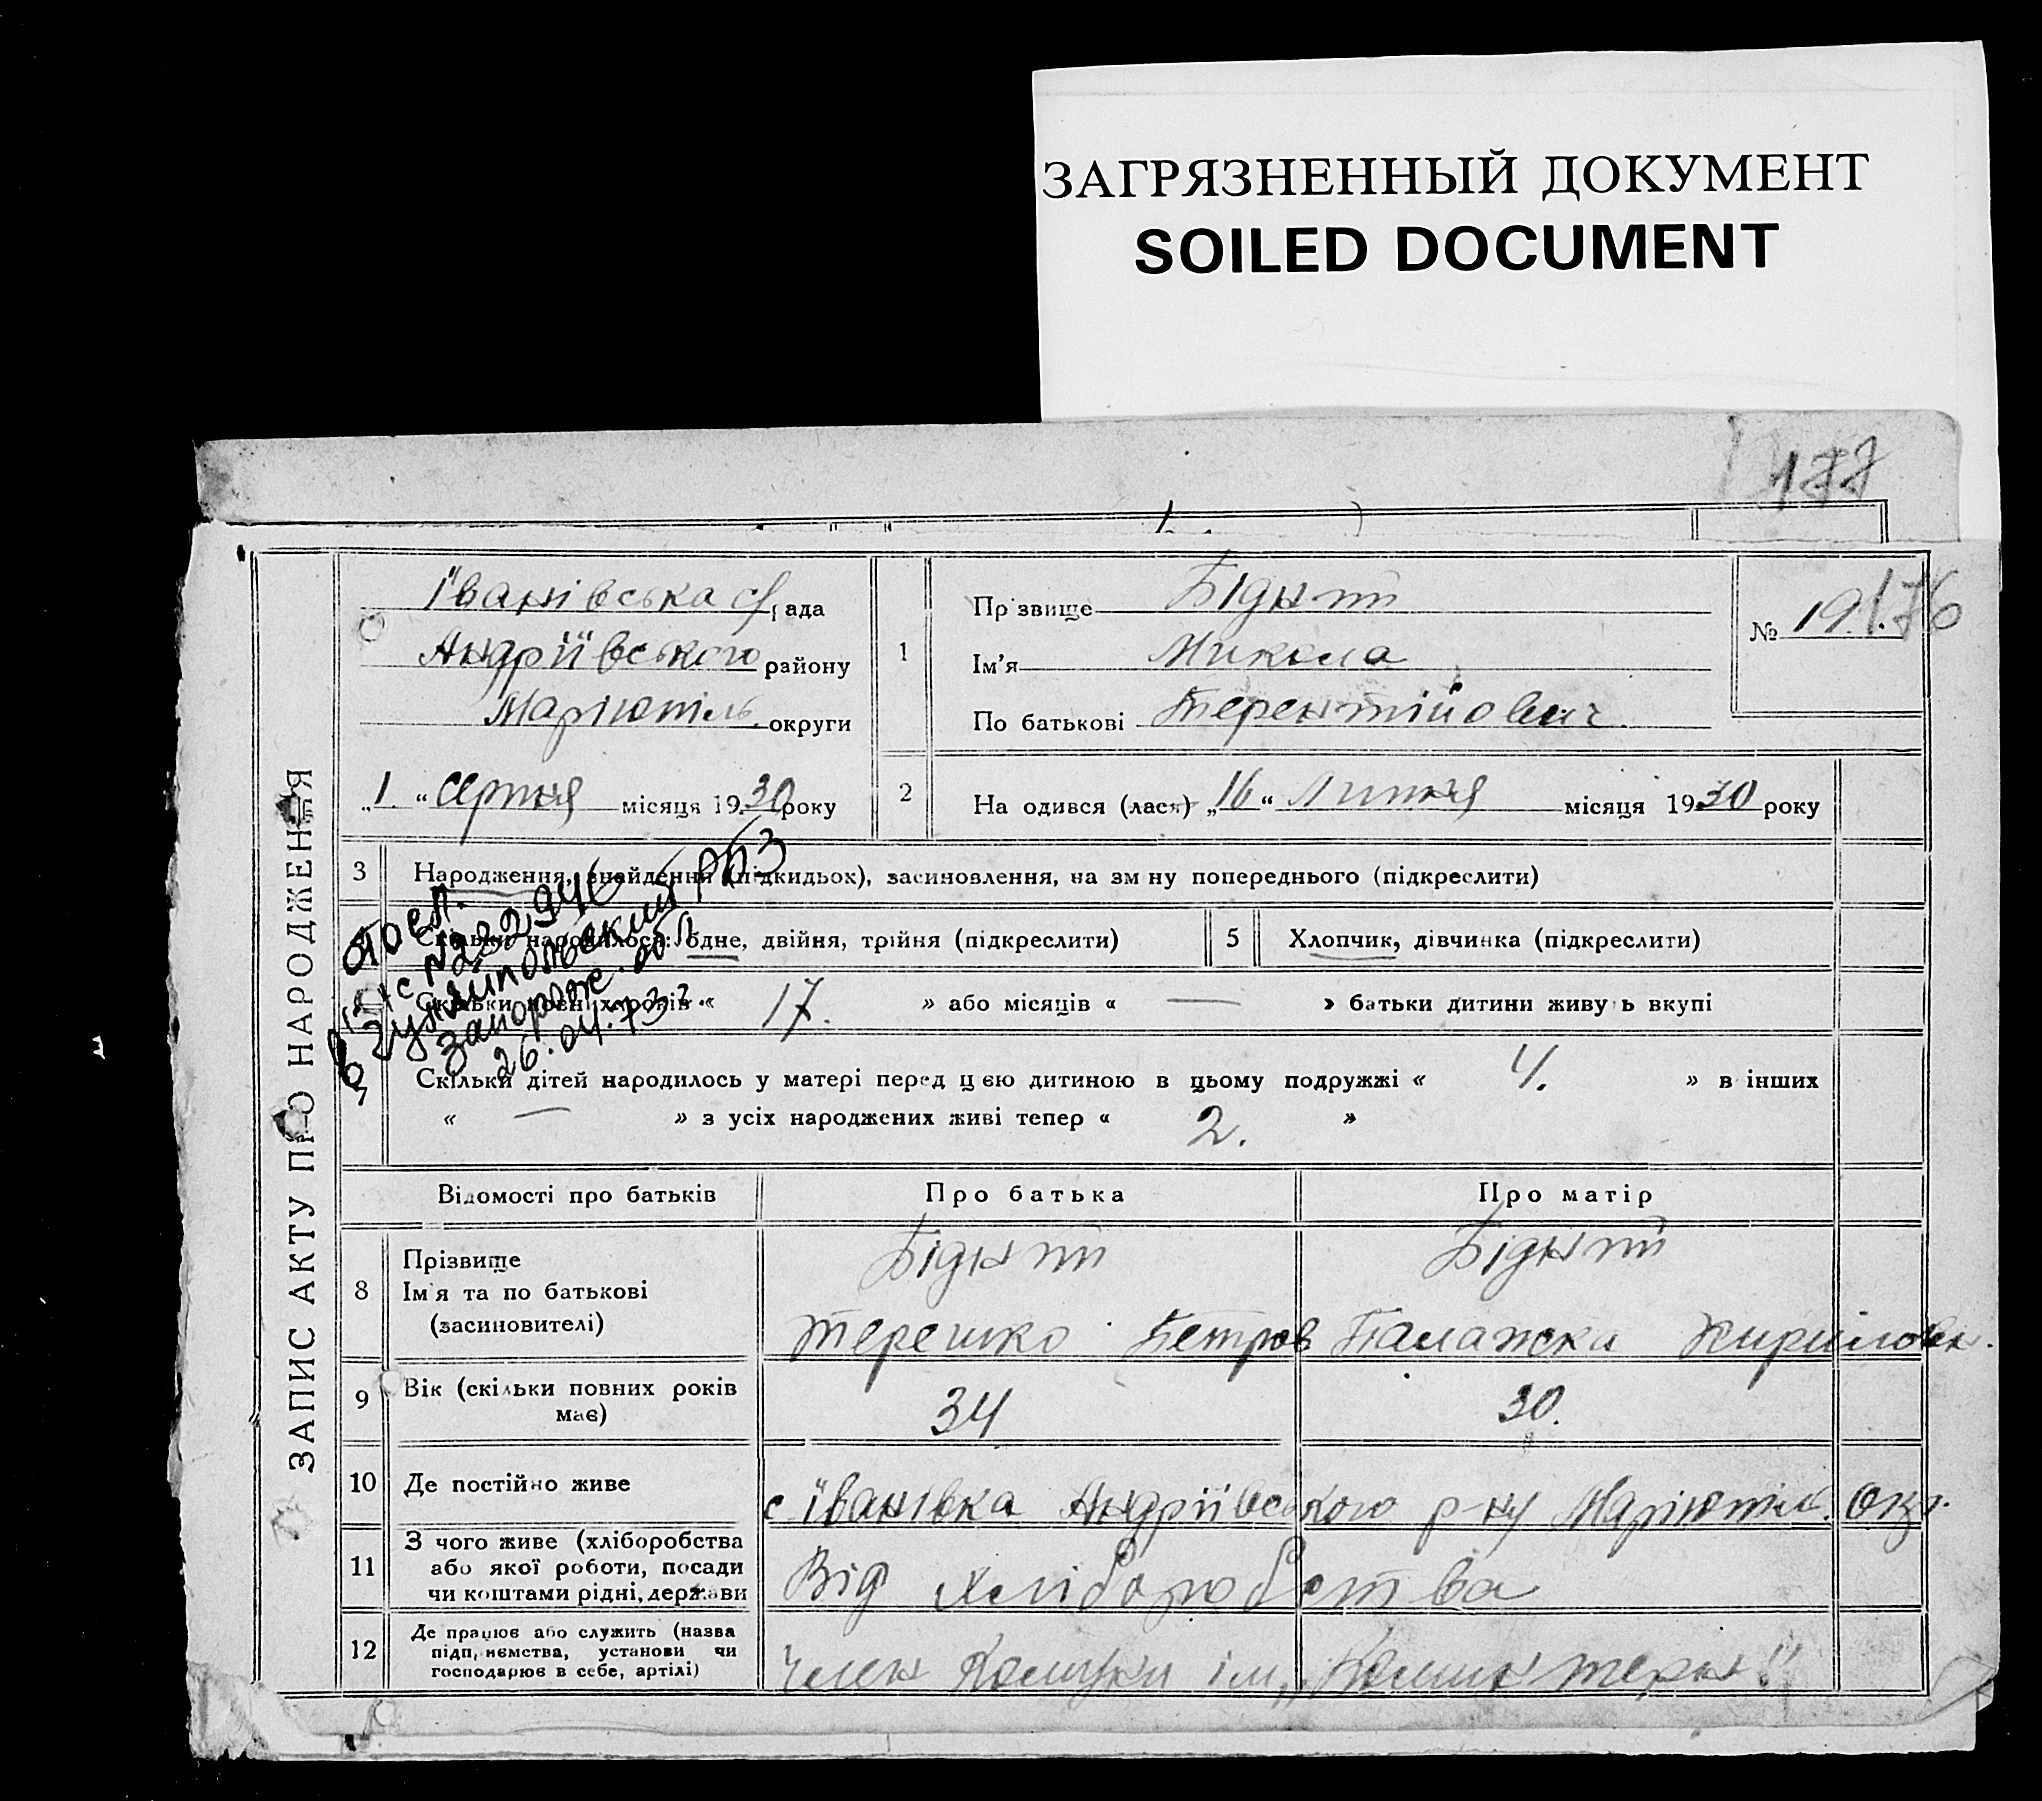 ЗАГРЯЗНЕННЫЙ ДОКУМЕНТ
SOILED DOCUMENT
177
ЗАПИС АКТУ ПРО НАРОДЖЕННЯ
Їванівська с/рада
Андріївського району
Маріюпіль округи
„1.“ серпня місяця 1930 року
1
Прізвище Бідний
Ім'я Микола
По батькові Терентійович
№ 19. 176
2 На одився (лася) „16“ Липня місяця 1930 року
3 Народження, знайдення (підкидьох), засиновлення, на зміну попереднього (підкреслити)
Скільки народилося: одне, двійня, трійня (підкреслити)
5 Хлопчик, дівчинка (підкреслити)
Скільки повних років « 17. » або місяців « — » батьки дитини живуть вкупі
№ 222946
Гуляйпольский РБЗ
запорож. обл
26.04.73 г.
Скільки дітей народилось у матері перед цією дитиною в цьому подружжі « 4. » в інших
« — » з усіх народжених живі тепер « 2. »
Відомості про батьків Про батька Про матір
8 Прізвище Бідний Бідний
Ім'я та по батькові
(засиновителі) Терешко Петров Палажка Кириловн.
9 Вік (скільки повних років має) 34 30.
10 Де постійно живе с. Їванівка Андріївського р-ну Маріюпіл. окр.
11 З чого живе (хліборобства
або якої роботи, посади
чи коштами рідні, держави Від хліборобства
12 Де працює або служить (назва
підприємства, установи чи
господарює в себе, артілі) член Комуни ім. „Коминтерн“